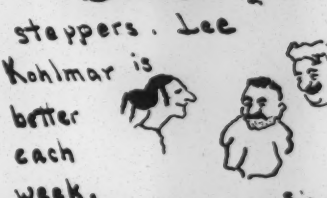 steppers. Lee
Kohlmar is
better
each
week.